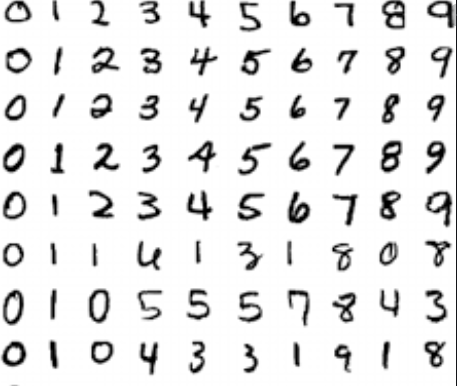 0 1 2 3 4 5 6 7 8 9
0 1 2 3 4 5 6 7 8 9
0 1 2 3 4 5 6 7 8 9
0 1 2 3 4 5 6 7 8 9
0 1 2 3 4 5 6 7 8 9
0 1 1 6 1 3 1 8 0 8
0 1 0 5 5 5 7 8 4 3
0 1 0 4 3 3 1 9 1 8